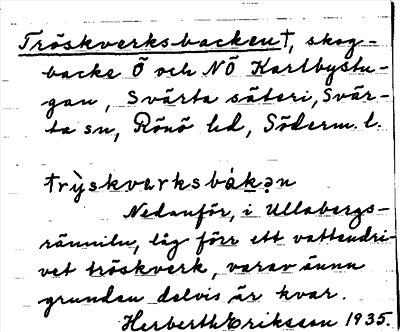 Tröskverksbacken†, skog-
backe Ö och NÖ Karlbystu-
gan, Svärta säteri, Svär-
ta sn, Rönö hd, Söderm. l.
trỳskværksbákən
Nedanför, i Ullabergs-
ränniln, låg förr ett vattendri-
vet tröskverk, varav ännu
grunden delvis är kvar.
Herberth Erikson 1935.